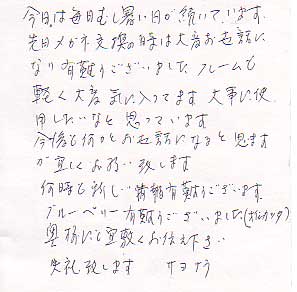 今日は毎日むし暑い日が続いています。
先日メガネ交換の時は大変お世話に
なり有難うございました フレームも
軽く大変気に入ってます 大事に使
用したいなと思っています
今後も何かとお世話になると思ます
が宜しくお願い致します
何時も新しい情報有難うございます。
ブルーベリー有難うございました
奥様にも宜敷くお伝え下さい
失礼致します サヨナラ